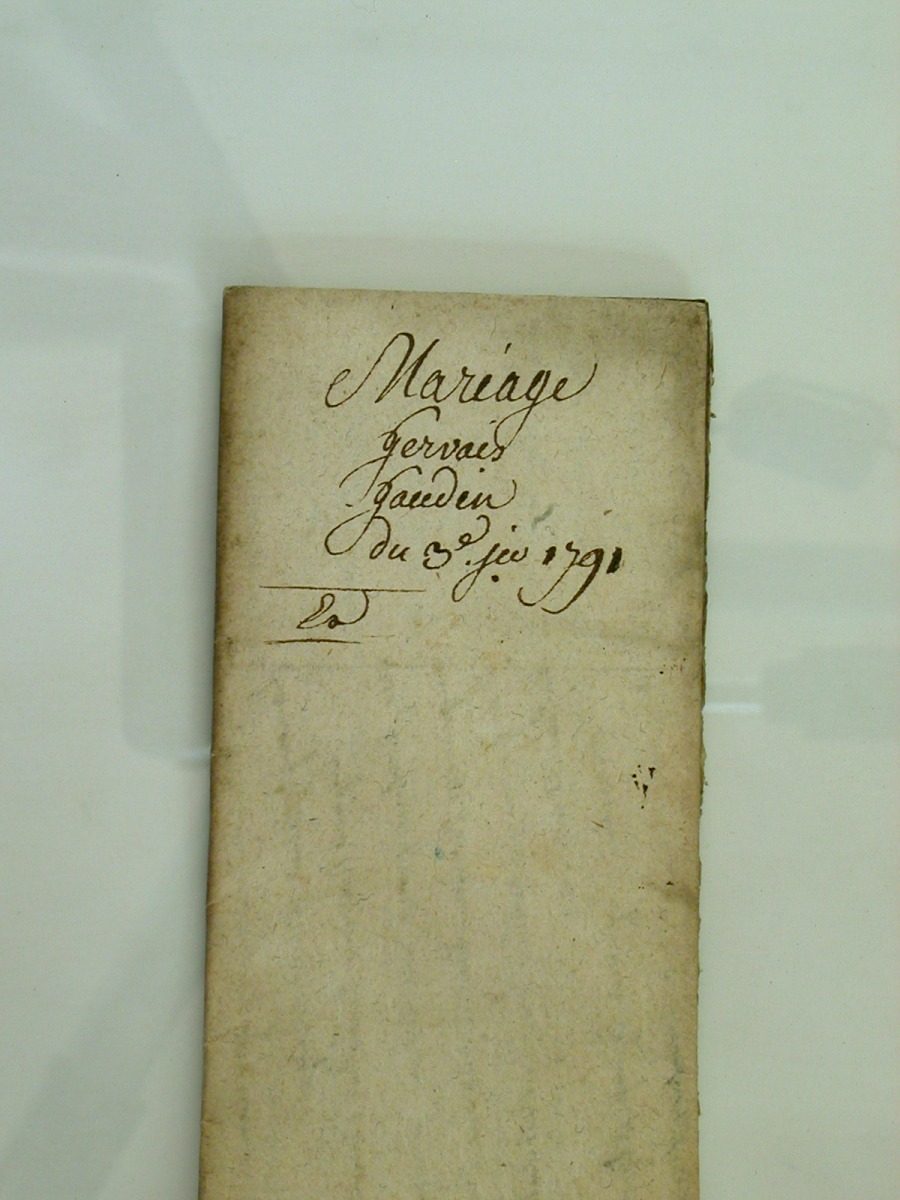 Mariage
Gervais
Gaudin
du 3e. 1791